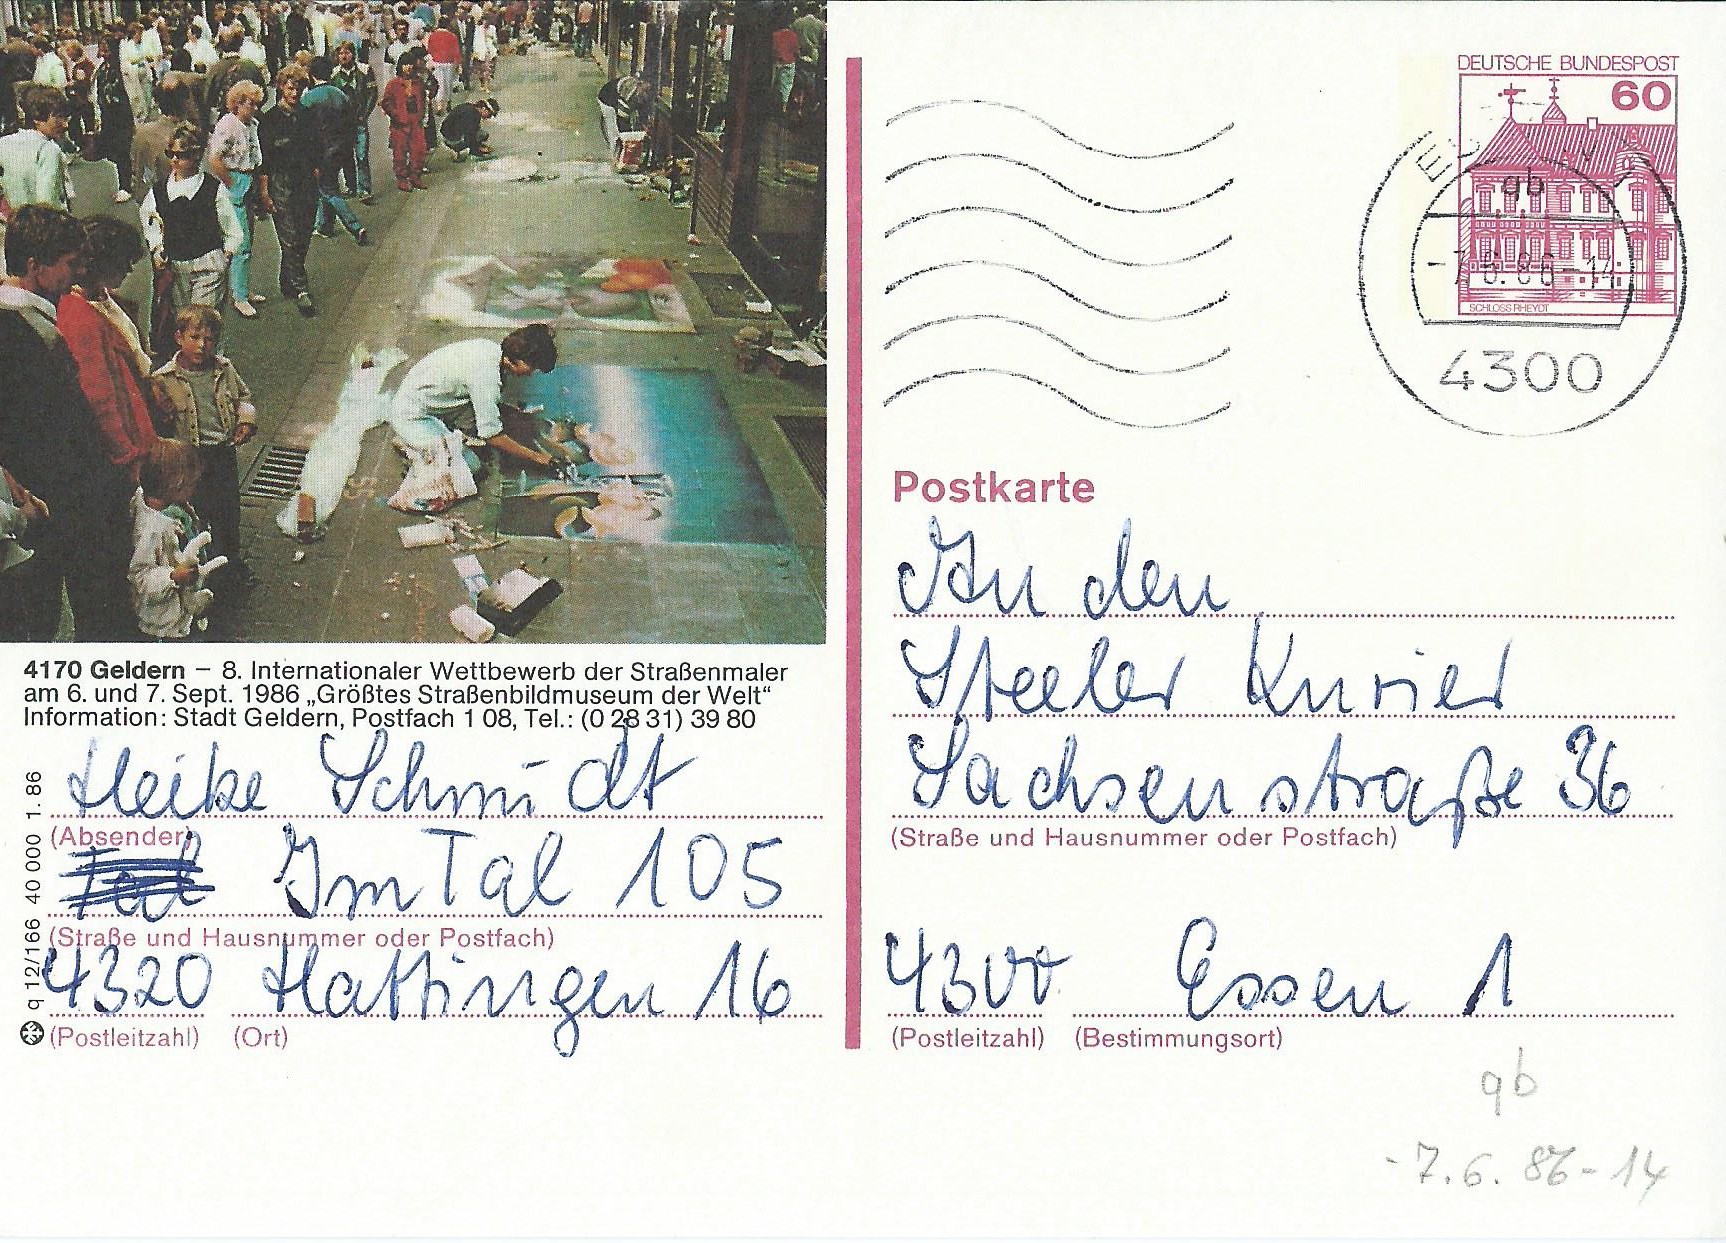 DEUTSCHE BUNDESPOST
60
SCHLOSS RHEYDT
gb
-7.6.86-14
4300
4170 Geldern – 8. Internationaler Wettbewerb der Straßenmaler
am 6. und 7. Sept. 1986 „Größtes Straßenbildmuseum der Welt“
Information: Stadt Geldern, Postfach 1 08, Tel.: (0 28 31) 39 80
Heike Schmidt
(Absender)
Im Tal 105
(Straße und Hausnummer oder Postfach)
4320 Hattingen 16
(Postleitzahl) (Ort)
q 12/166 40 000 1. 86
Postkarte
An den
Steeler Kurier
Sachsenstraße 36
(Straße und Hausnummer oder Postfach)
4300 Essen 1
(Postleitzahl) (Bestimmungsort)
gb
-7.6.86-14